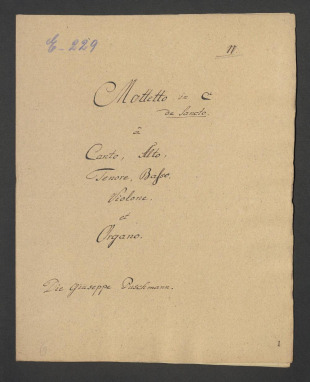 E-229
n
Mottetto in C
de Sancto.
à
Canto, Alto,
Tenore, Basso,
Violone.
et
Organo.
Die Giuseppe Puschmann.